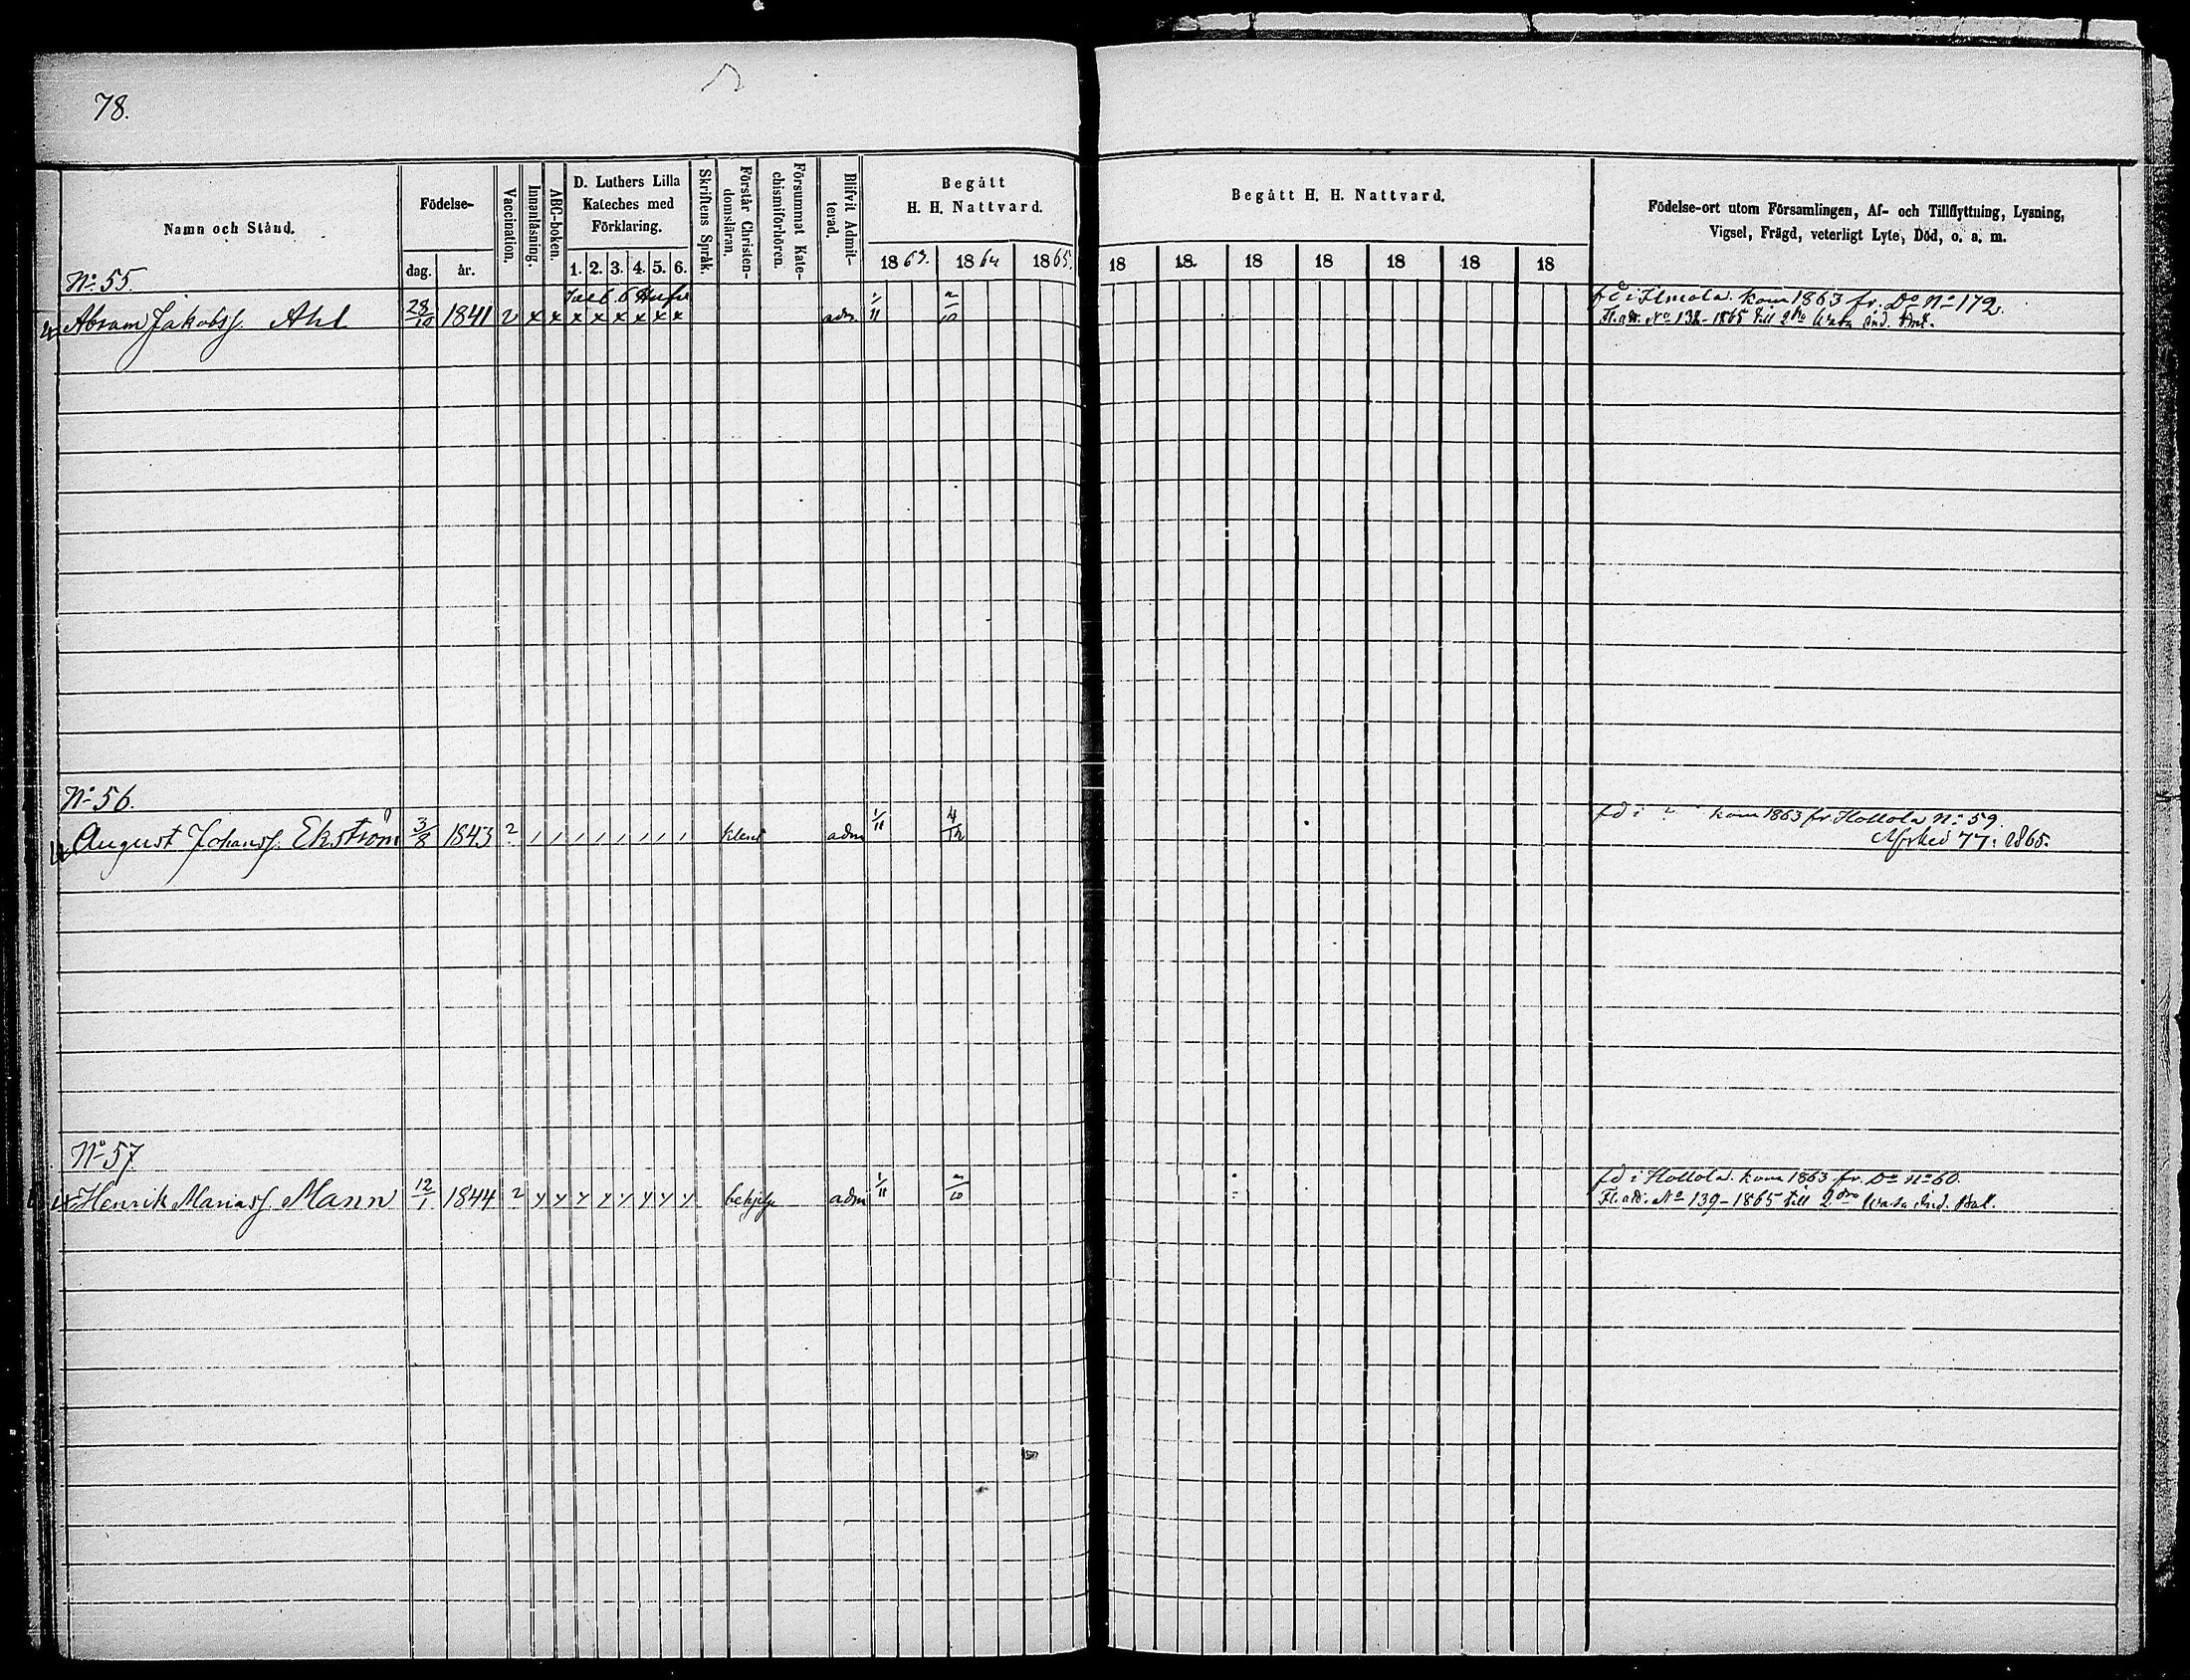 78.
Namn och Stånd.
Födelse-
dag.
år.
Vaccination.
Innanläsning.
ABC-boken.
D. Luthers Lilla
Kateches med
Förklaring.
1. 2. 3. 4. 5. 6.
Skriftens Språk.
Förstår Christen-
domsläran.
Försummat Kate-
chismiförhören.
Blifvit Admit-
terad.
Begått
H. H. Nattvard.
1863. 1864 1865.
Begått H. H. Nattvard.
18 18 18 18 18 18 18
Födelse-ort utom Församlingen, Af- och Tillflyttning, Lysning,
Vigsel, Frägd, veterligt Lyte, Död, o. a. m.
No 55.
Abram Jakobss. Ahl 28/10 1841 2 x x x x x x x x adm 1/11 2/10
fd i Ilmola. kom 1863 fr. Do No 172.
Fl. att. No 138-1865 till 2dra Wasa ind. Bat.
No 56.
August Johanss. Ekström 3/8 1843 2 / / / / / / / / klent adm 1/11 4/12
fd i ? kom 1863 fr. Hollola No 59.
Afsked 77: 1865.
No 57
Henrik Mariass. Mann 12/1 1844 2 adm 1/11 2/10
fd i Hollola. kom 1863 fr. Do No 60.
Fl. att. No 139-1865 till 2dra Wasa ind. Bat.